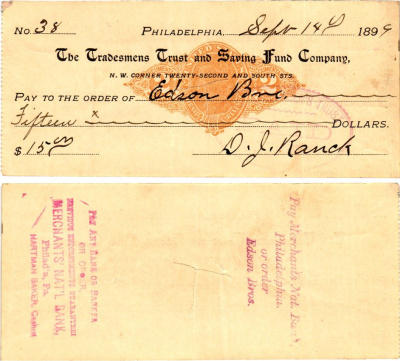 No. 38 Philadelphia, Sept 14 1899
The Tradesmens Trust and Saving Fund Company,
N. W. CORNER TWENTY-SECOND AND SOUTH STS.
Pay to the order of Edson Bros.
Fifteen x Dollars.
$ 15 00 D. J. Ranck
PAY ANY BANK OR BANKER
OR ORDER.
PREVIOUS ENDORSEMENTS GUARANTEED
MERCHANTS' NAT'L BANK,
Philad'a, Pa.
HARTMAN BAKER, Cashier
Pay Merchants Nat. Bank
Philadelphia,
or order
Edson Bros.